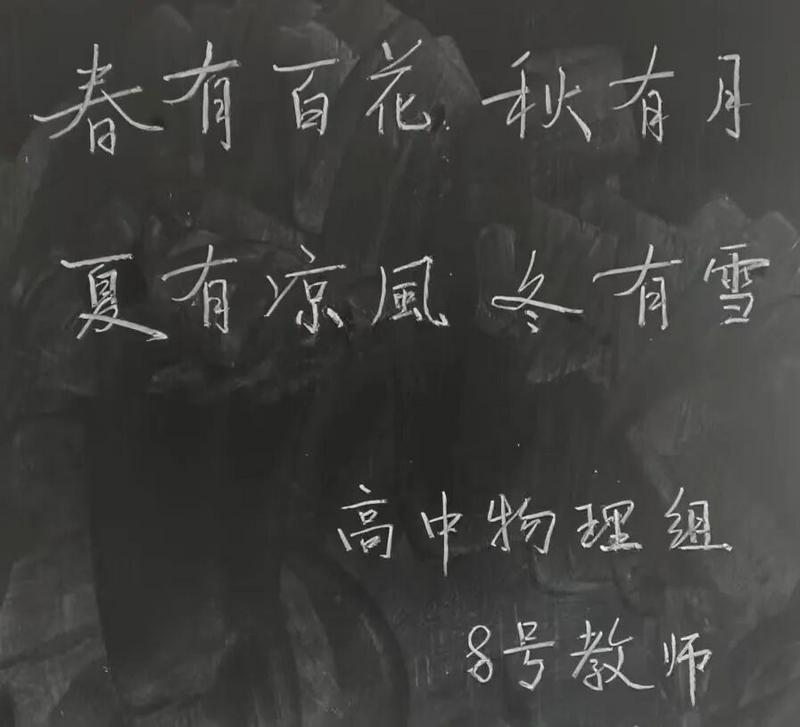 春有百花 秋有月
夏有凉風 冬有雪
高中物理组
8号教师